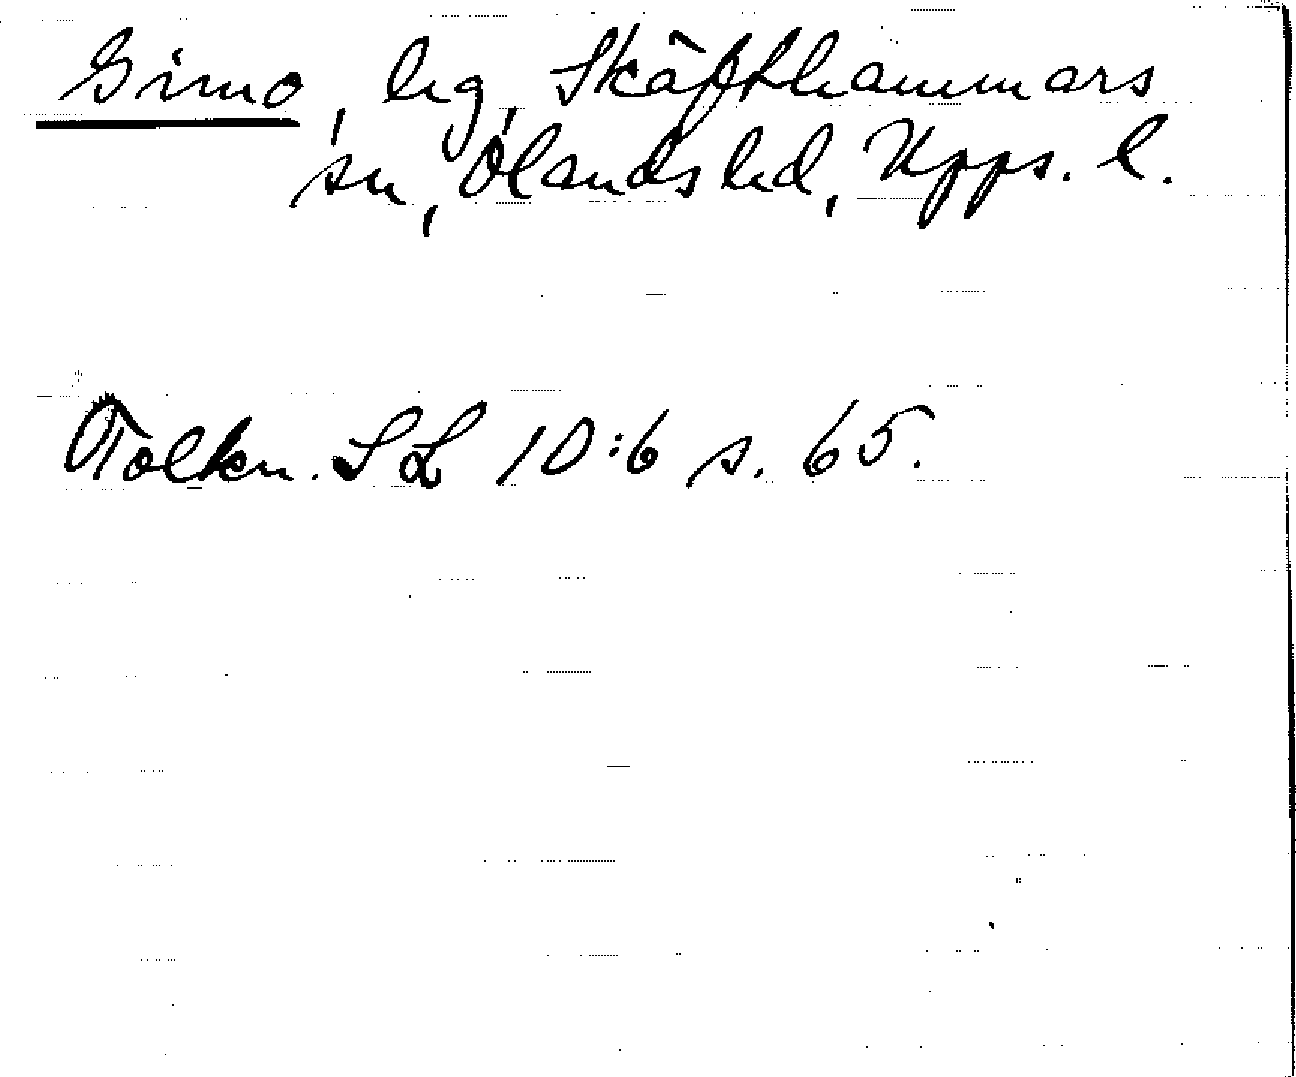 Gimo, bg, Skäfthammars
sn, Ölands hd, Upps. l.
Tolkn. SL 10:6 s. 65.